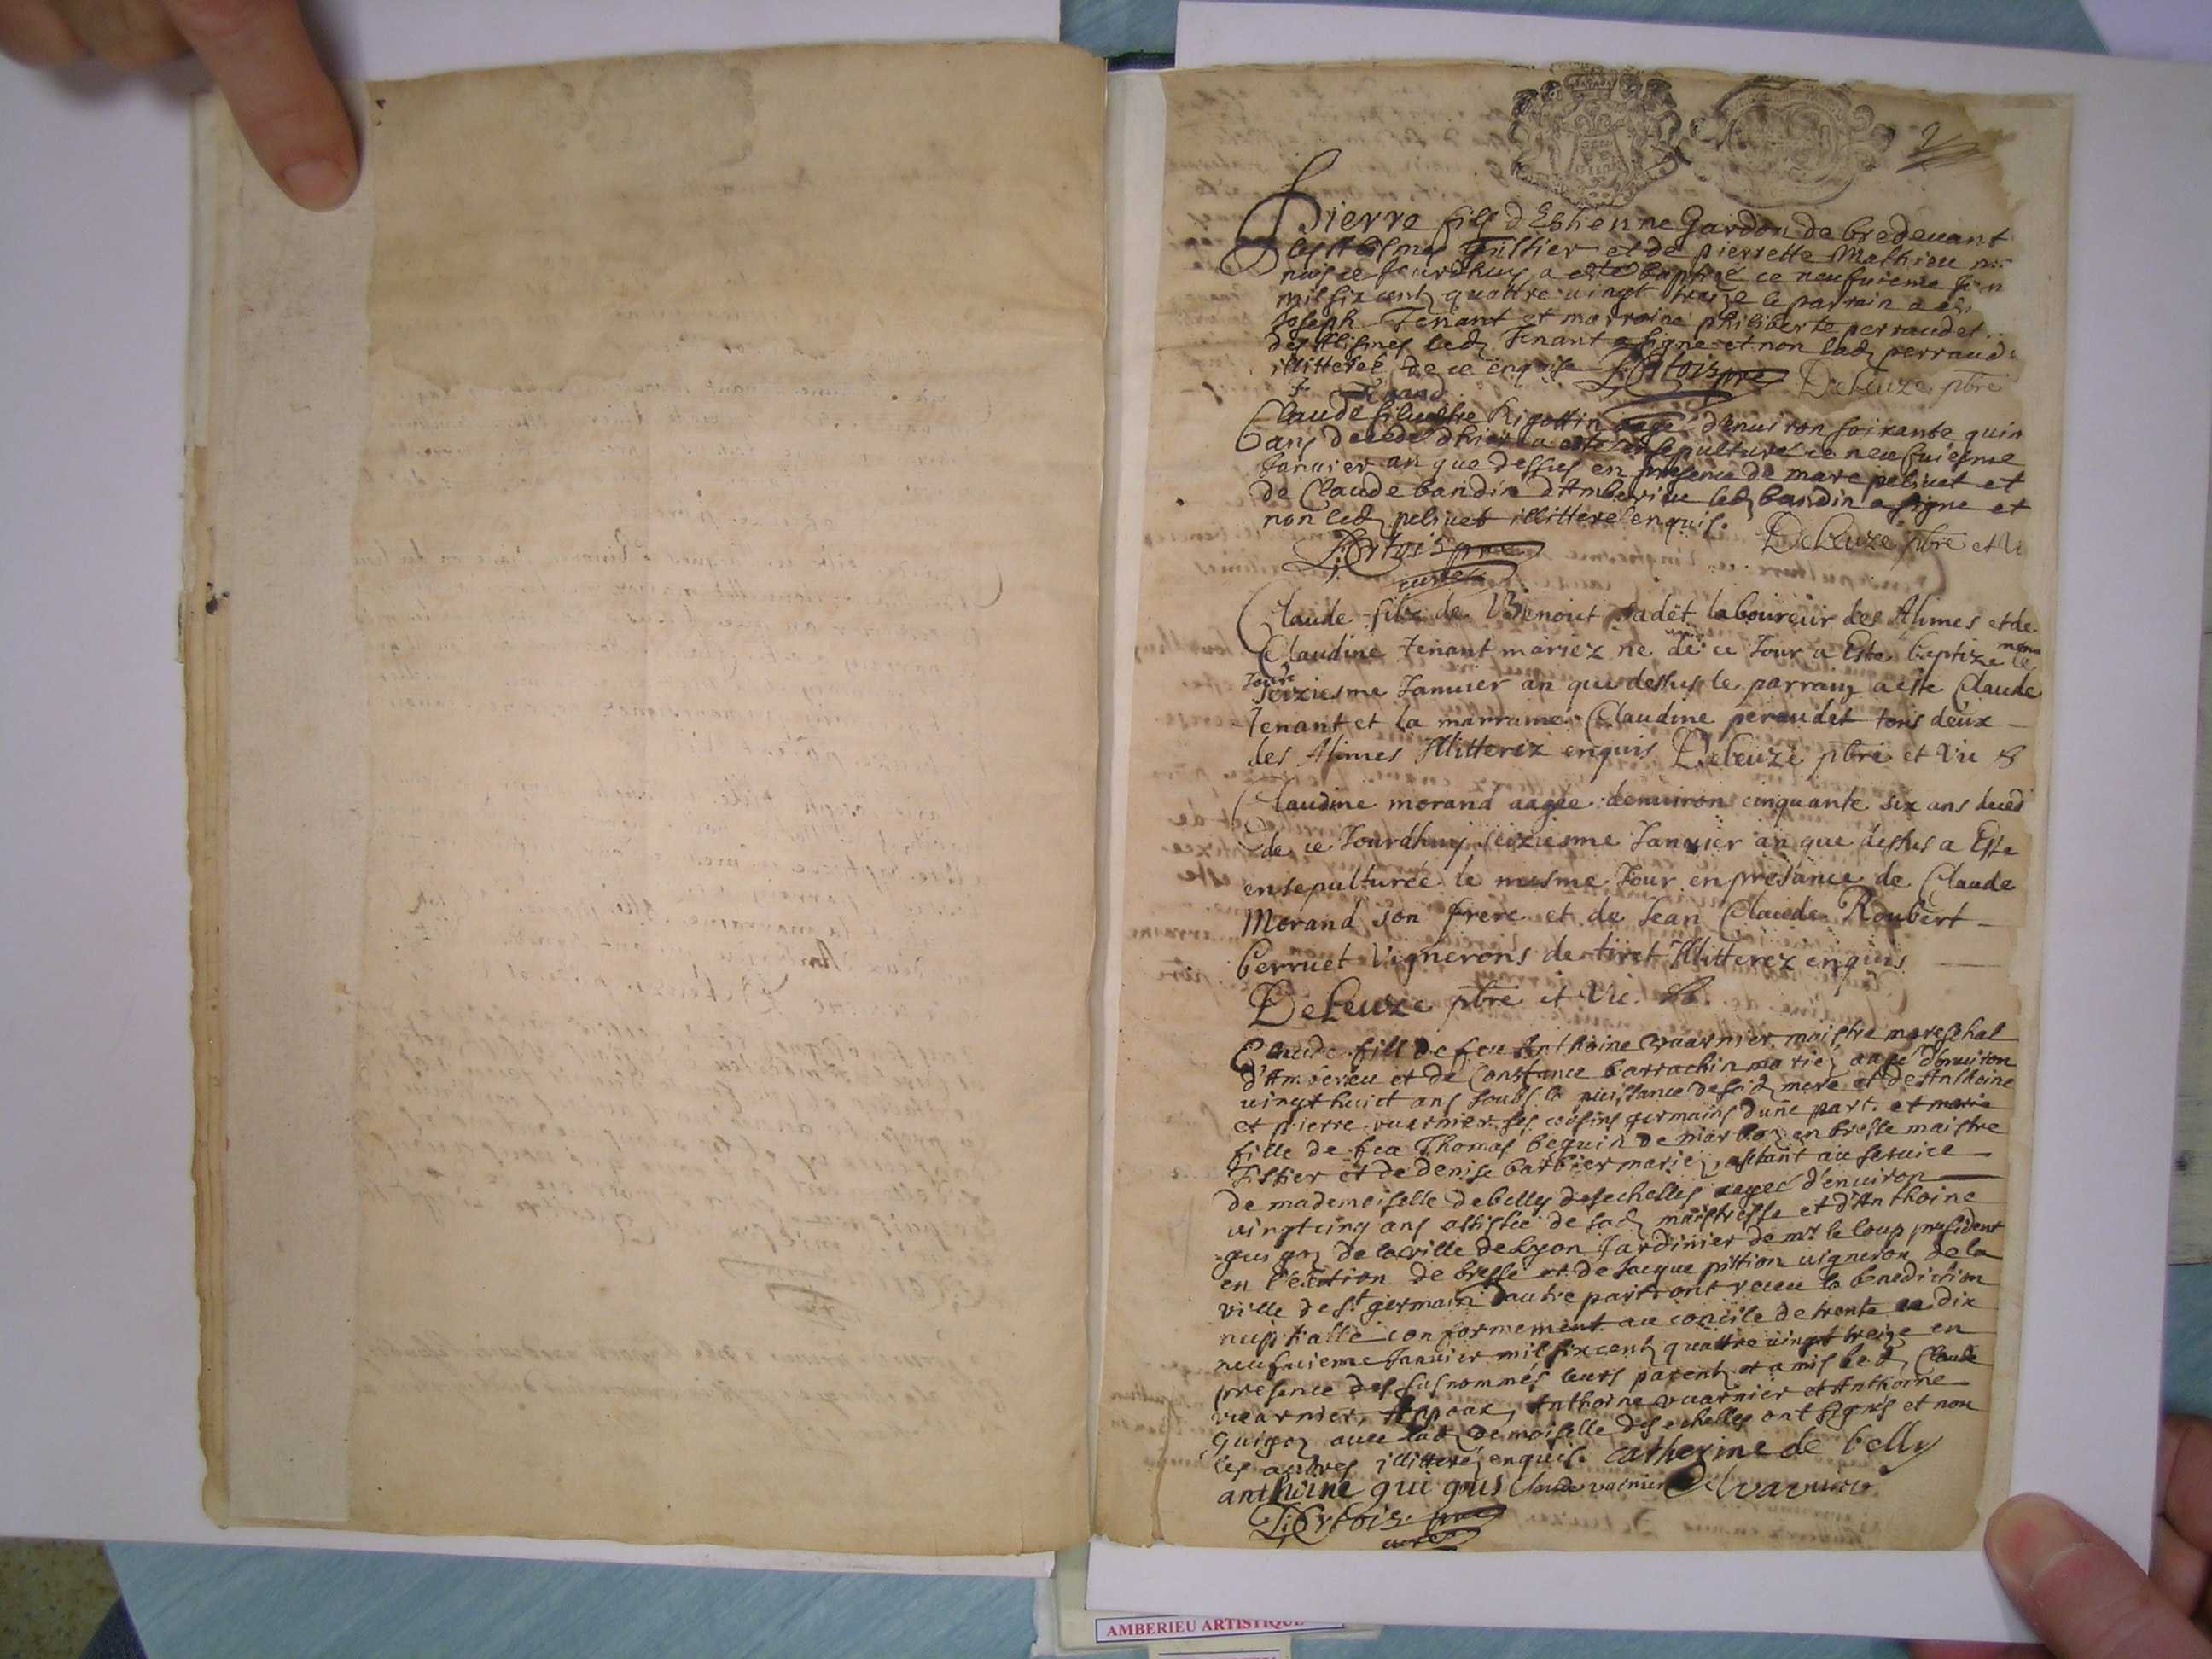 2
Pierre fils d'Estienne Gardon de bredeuant
les Alismes tissier et de pierrette Mathieu
ce jourdhuy a esté baptisé ce neufuieme
mil six cent quattre uingt treize le parrain a
Joseph Tenant et marraine philiberte perraudet
des Alismes led Tenant a signe et non lad perraud
illitteree de ce enquise Pbre Deleuze pbre
Tenand
Claude Rigottin aagé d'enuiron soixante quin
ans decede dhier a esté ensepulturé ce neufuiesme
Januier an que dessus en presence de marc peliuet et
de Claude baudin d'Amberieu led baudin a signe et
non led peliuet illitteré enquis.
Deleuze pbre et Vi
curé
Claude fils de Benoit cadet laboureur des Alimes et de
Claudine Tenant mariez ne de ce Jour a Esté baptize le
Jour
seiziesme Januier an que dessus le parrain a esté Claude
Tenant et la marraine Claudine peraudet tous deux
des Alimes Illitterez enquis Deleuze pbre et Vic
Claudine morand aagée denuiron cinquante six ans deced
de ce Jourdhuy seiziesme Januier an que dessus a Esté
ensepulturée le mesme Jour en presance de Claude
Morand son frere et de Jean Claude Roubert
berruet Vignerons de tiret Illitterez enquis
Deleuze pbre et Vic.
Claude fils de feu Anthoine vuarnier maistre mareschal
d'Amberieu et de Constance barrachin mariez aagé d'enuiron
uingt huict ans soubs la puissance de sad mere et de Anthoine
et pierre vuarnier ses cousins germains d'une part. et marie
fille de feu Thomas beguin de marboz en bresse maistre
Tissier et de denise barbier mariez, estant au seruice
de mademoiselle debelly desechelles aagée d'enuiron
vingt cinq ans assistée de sad maistresse et d'Anthoine
guigoz de la ville de Lyon Jardinier de mr le loup president
en l'election de bresse et de Jacque pittion uigneron de la
ville de St germain d'autre part ont receu la benediction
nuptialle conformement au concile de trente ce dix
neufuieme Januier mil six cent quattre uingt treize en
presence des susnommés leurs parents et amis led Claude
vuarnier, Anthoine vuarnier et Anthoine
Guigoz auec lad Demoiselle des echelles ont signés et non
les autres illitterés enquis. catherine de belly
anthoine guigous Claude varnier A varnier
curé
AMBERIEU ARTISTIQUE